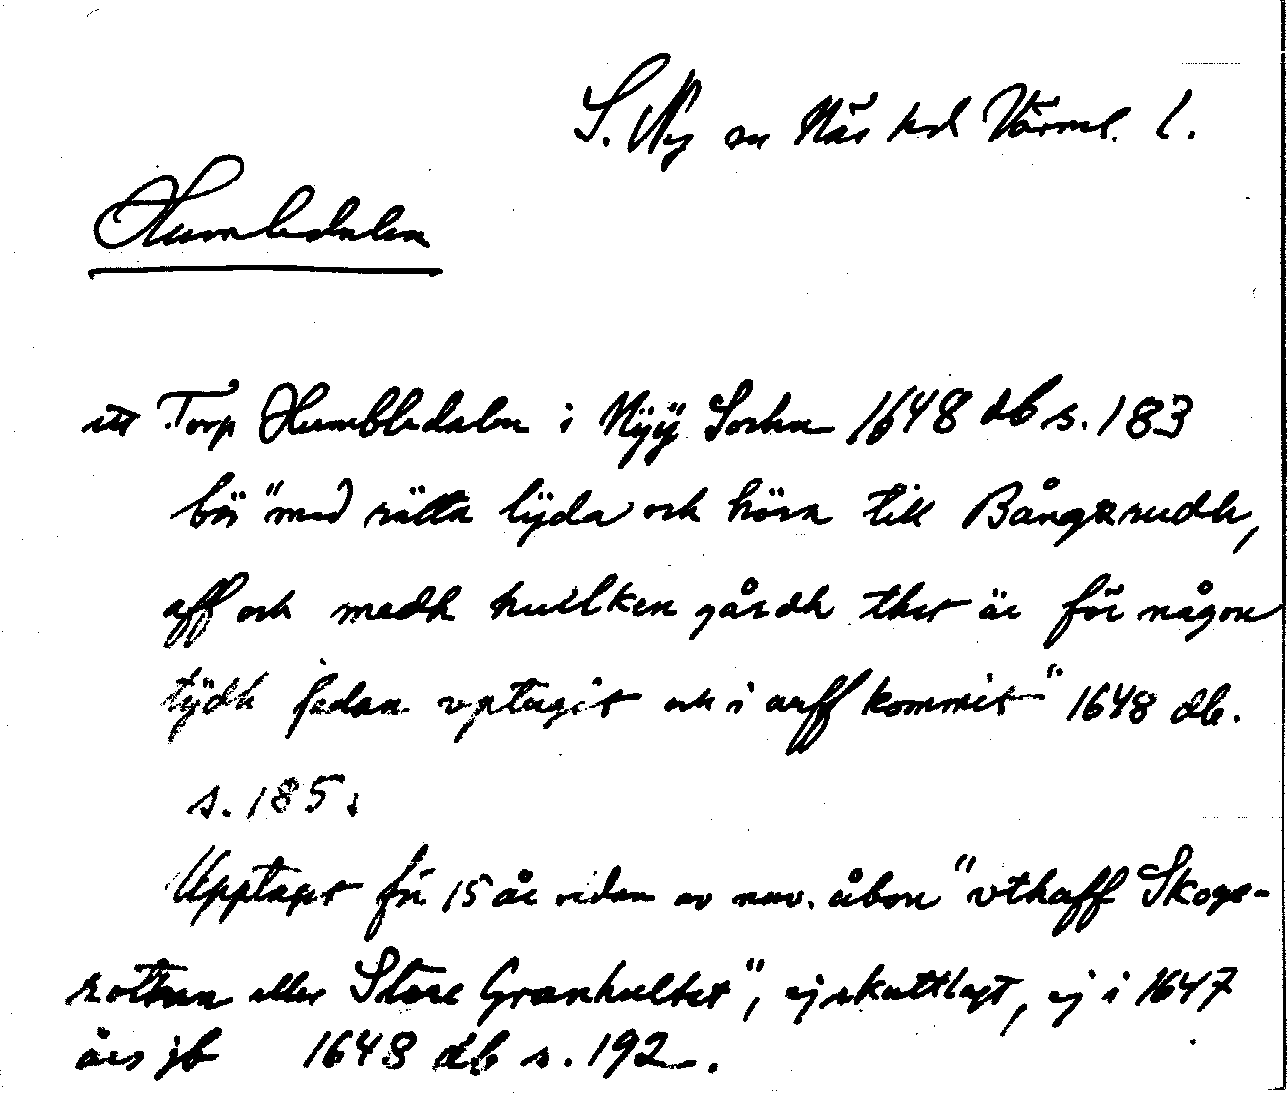 S. Ny sn Näs hd Värml. l.
Humledalen
ett Torp Humbledalen i Nÿÿ Sochn 1648 db s. 183
bör "med rätta lÿda och höra till Bångzrudh,
aff och medh huilken gårdh thet är för någon
tÿdh sedan vptagit och i arff kommit" 1648 db.
s. 185.
Upptaget för 15 år sedan av nuv. åbon "vthaff Skogs-
rotten eller Store Granhultet", ej skattlagt, ej i 1647
års jb 1648 db s. 192.